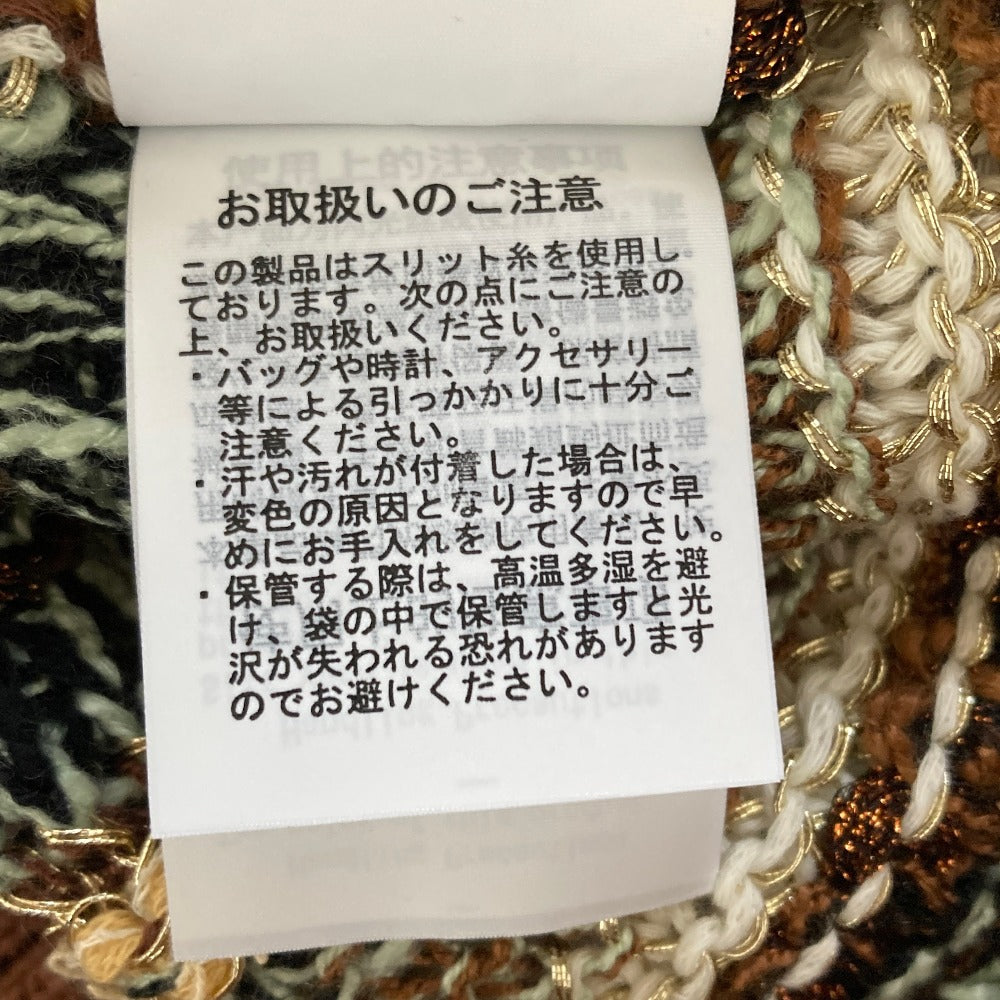 お取扱いのご注意
この製品はスリット糸を使用し
ております。次の点にご注意の
上、お取扱いください。
・バッグや時計、アクセサリー
等による引っかかりに十分ご
注意ください。
・汗や汚れが付着した場合は、
変色の原因となりますので早
めにお手入れをしてください。
・保管する際は、高温多湿を避
け、袋の中で保管しますと光
沢が失われる恐れがあります
のでお避けください。